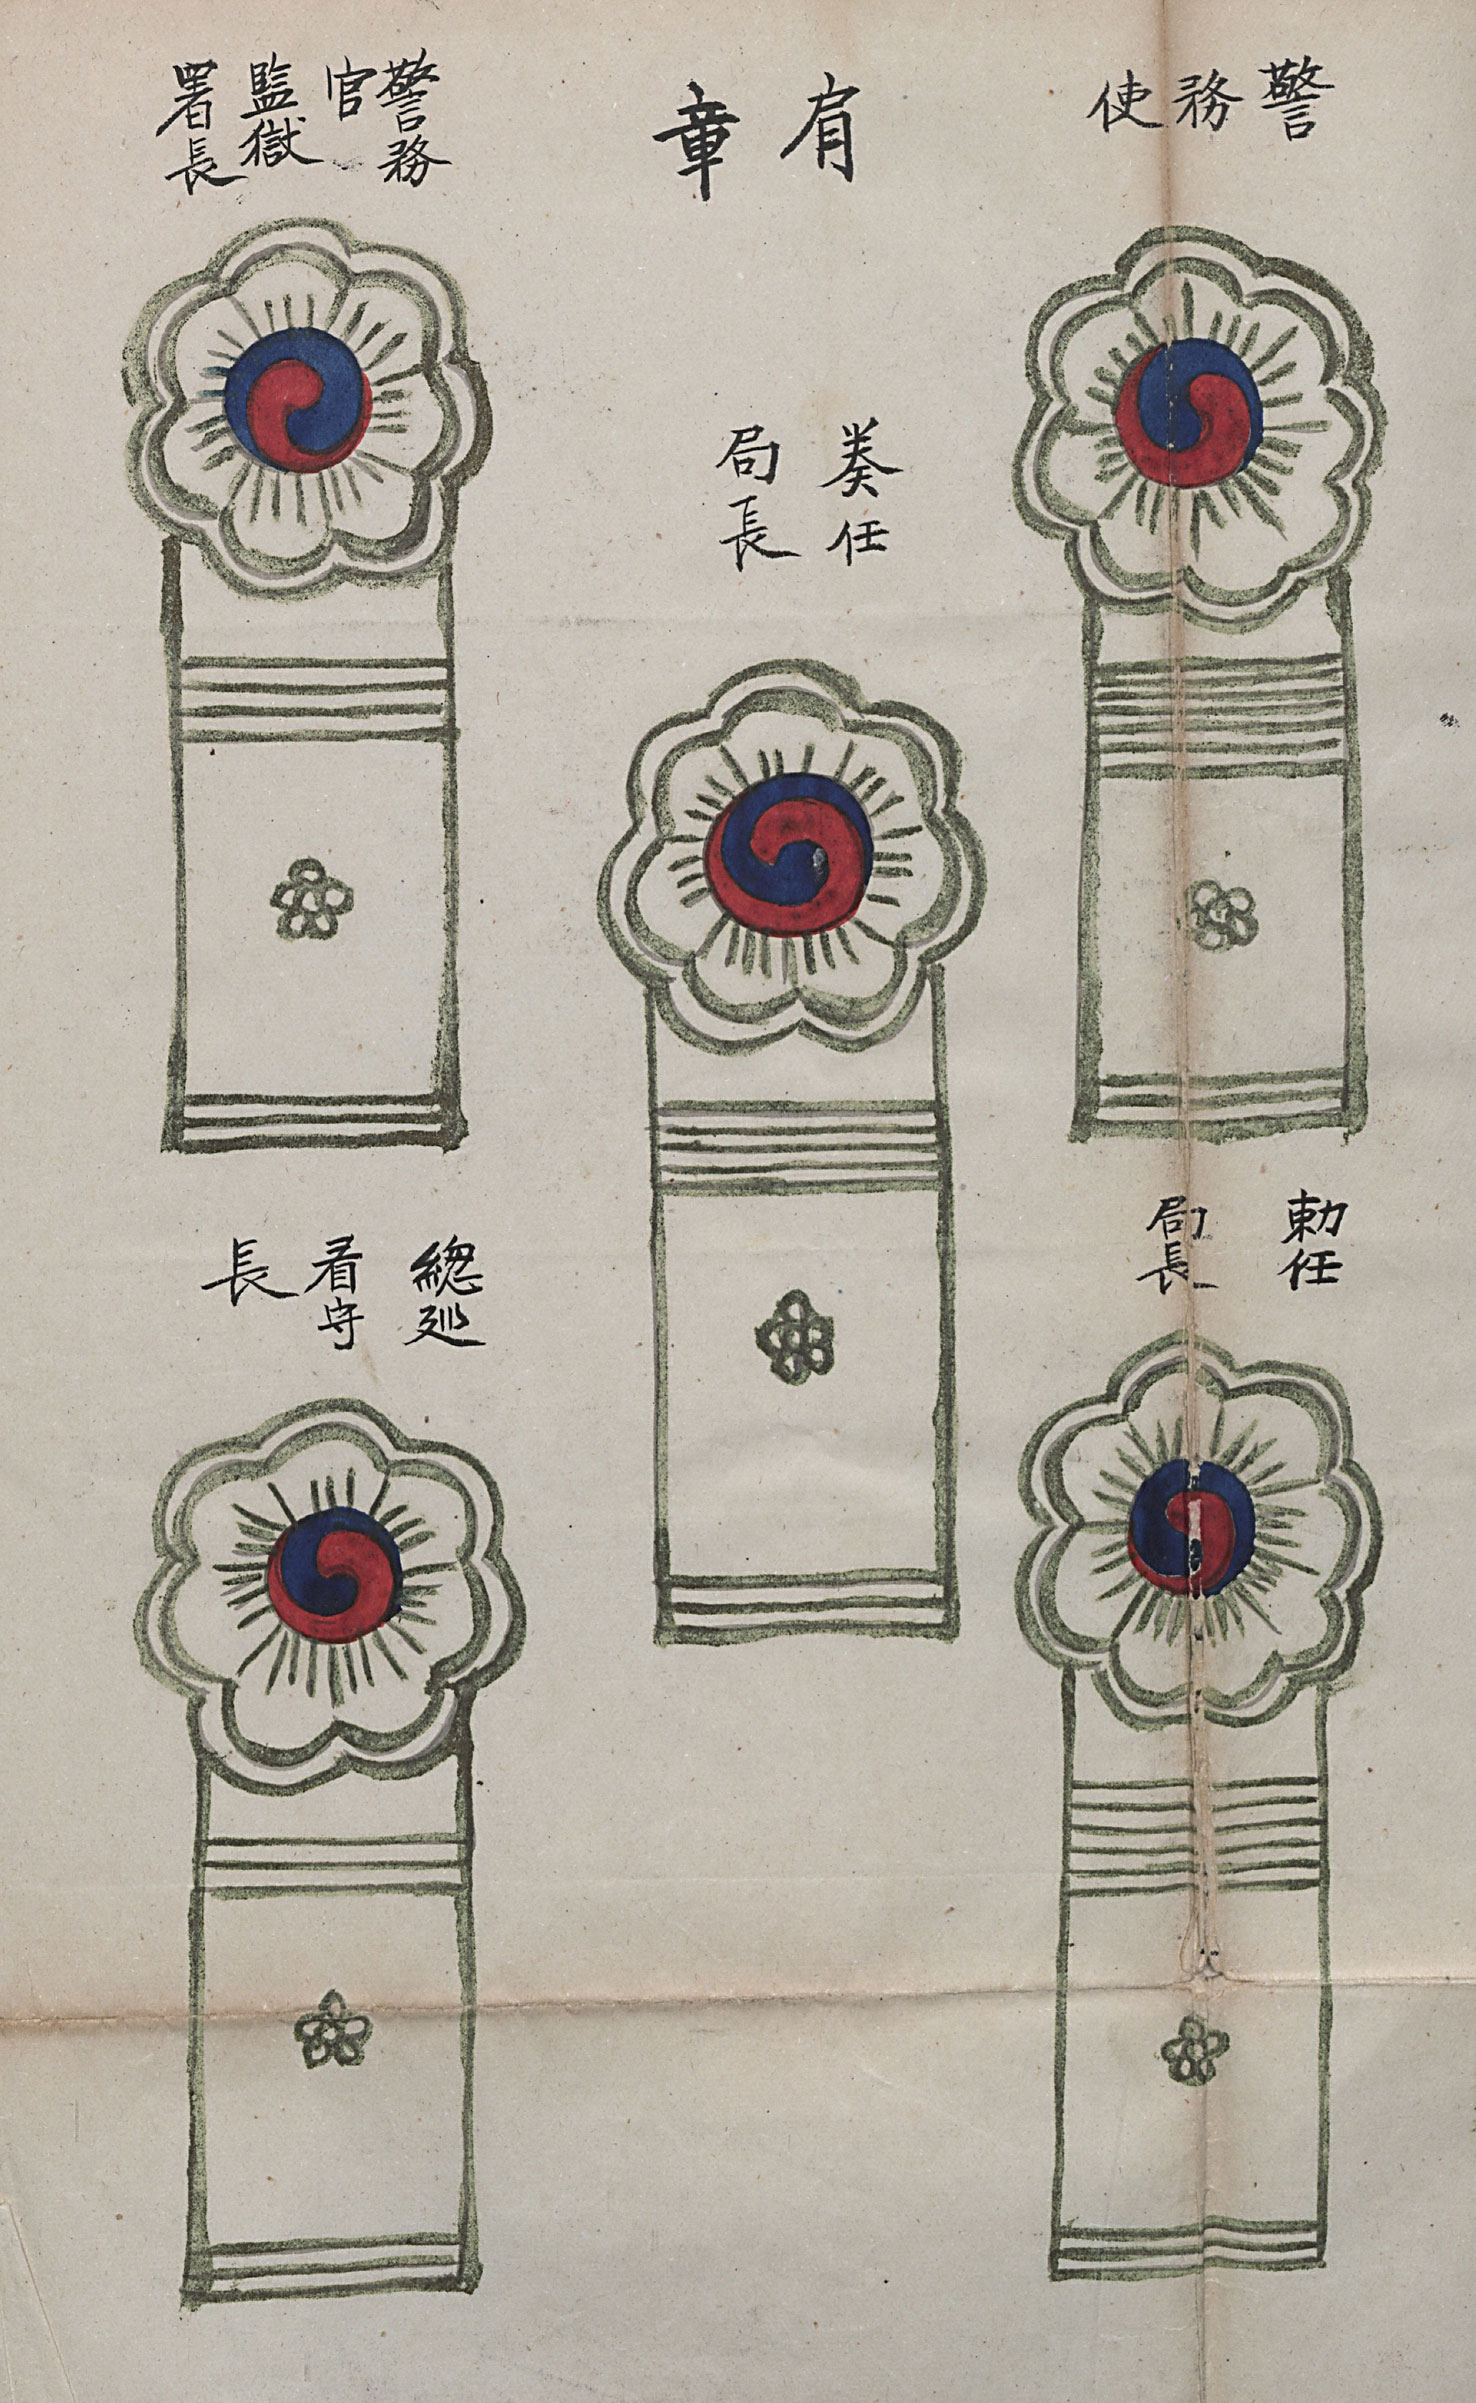 肩章
警務使
勅任
局長
奏任
局長
警務
官
監獄
署長
總巡
看守
長